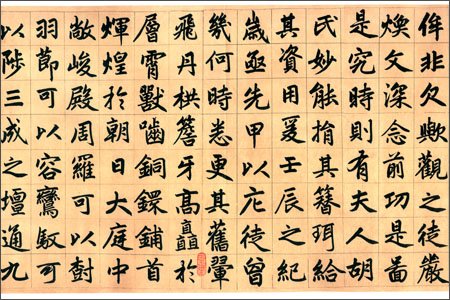 侔非欠歟觀之徒嚴
煥文深念前功是啚
是究時則有夫人胡
氏妙能捐其簪珥給
其資用爰壬辰之紀
歲亟先甲以庀徒曾
幾何時悉更其舊翬
飛丹栱簷牙髙矗於
層霄獸嚙銅鐶鋪首
輝煌於朝日大庭中
敞峻殿周羅可以尌
羽節可以容鸞馭可
以陟三成之壇通九